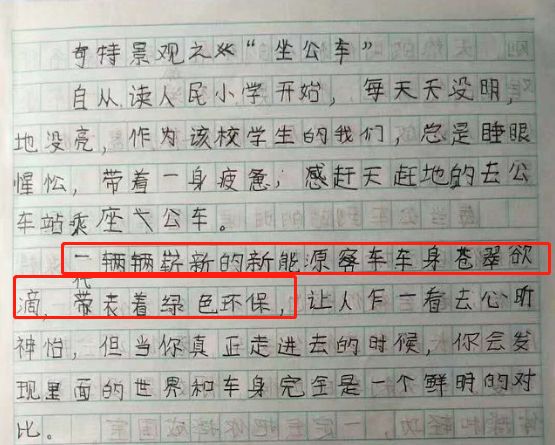 奇特景观之 "坐公车"
自从读人民小学开始，每天天没明，
地没亮，作为该校学生的我们，总是睡眼
惺忪，带着一身疲惫，感赶天赶地的去公
车站乘座公车。
一辆辆崭新的新能源客车车身苍翠欲
滴，代表着绿色环保，让人乍一看去心旷
神怡，但当你真正走进去的时候，你会发
现里面的世界和车身完全是一个鲜明的对
比。